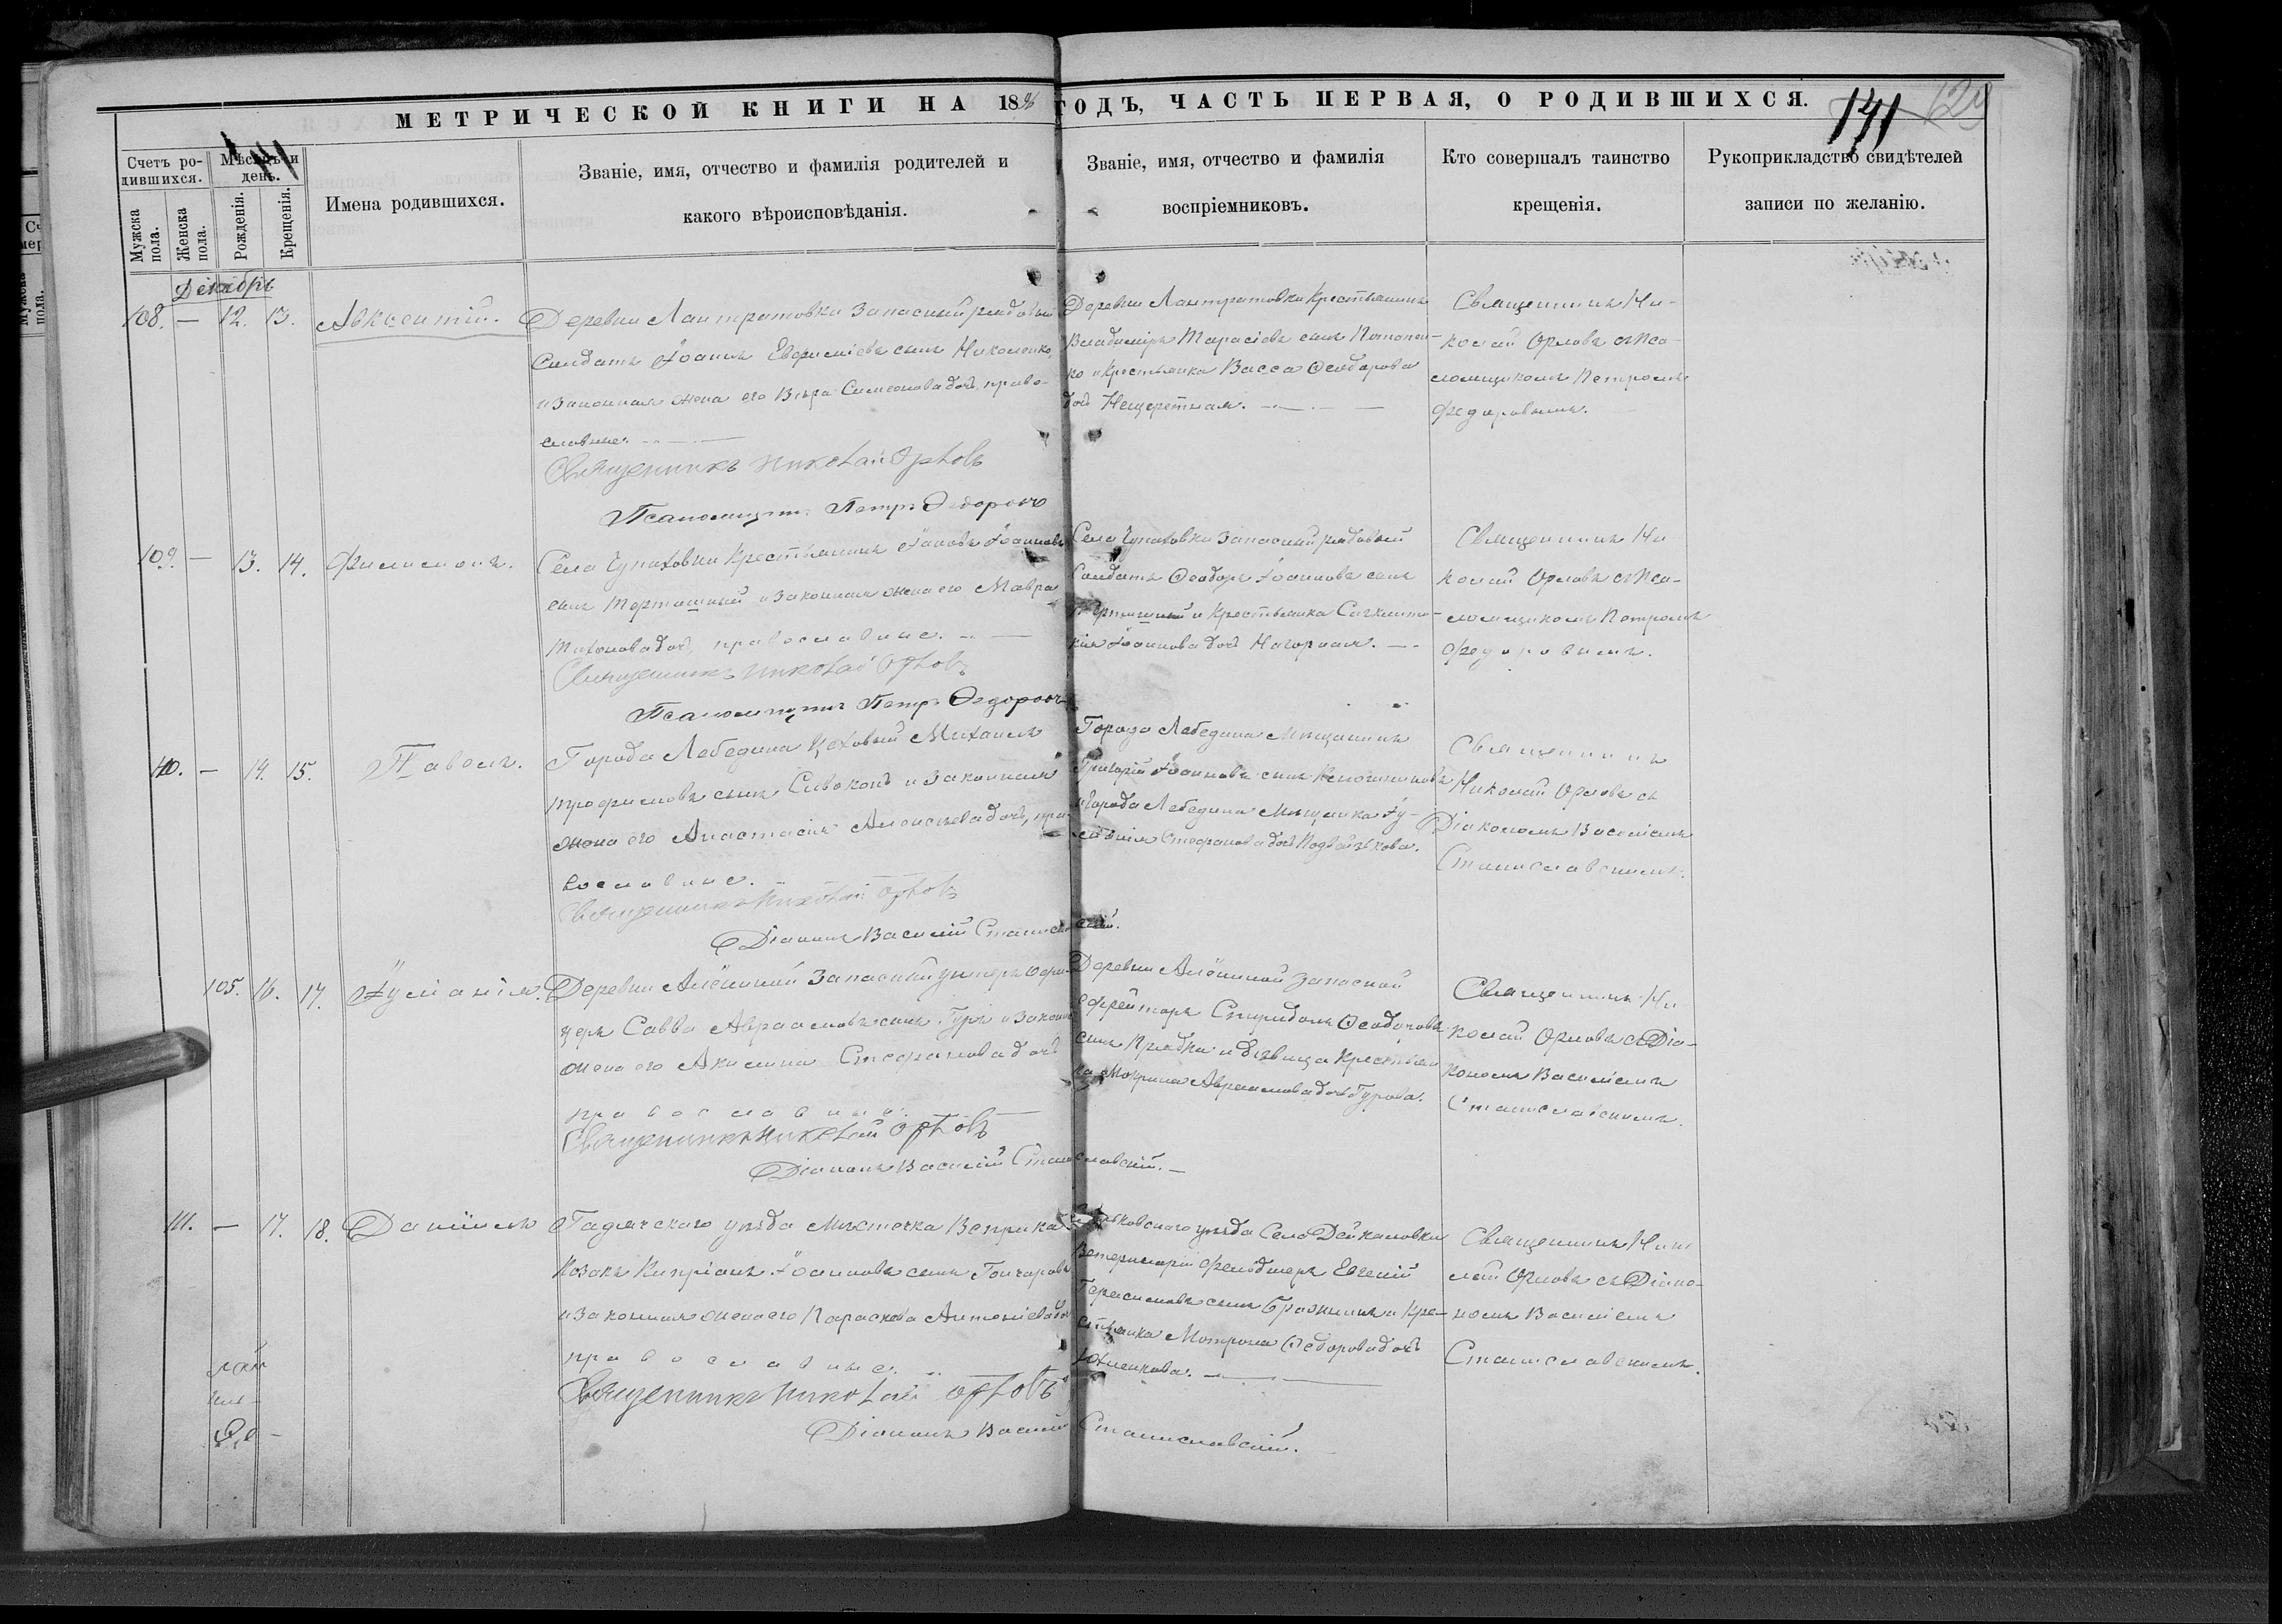 МЕТРИЧЕСКОЙ КНИГИ НА 1896 ГОДЪ, ЧАСТЬ ПЕРВАЯ, О РОДИВШИХСЯ.
141
129
Счетъ родившихся.
Мужска пола.
Женска пола.
Мѣсяцъ и день.
Рожденія.
Крещенія.
Имена родившихся.
Званіе, имя, отчество и фамилія родителей и
какого вѣроисповѣданія.
Званіе, имя, отчество и фамилія
воспріемниковъ.
Кто совершалъ таинство
крещенія.
Рукоприкладство свидѣтелей
записи по желанію.
Декабрь
108. — 12. 13. Авксентій.
Деревни Лантратовки запасный рядовый
Солдатъ Іоаннъ Евфиміевъ сынъ Николенко,
и законная жена его Вѣра Симеонова дочь, право-
славные.
Священникъ Николай Орловъ
Псаломщикъ Петръ Ѳедоровъ
Деревни Лантратовки Крестьянинъ
Владиміръ Тарасіевъ сынъ Потапен-
ко и Крестьянка Васса Ѳеодорова
дочь Нещеретная.
Священникъ Ни-
колай Орловъ съ Пса-
ломщикомъ Петромъ
Федоровымъ.
109. — 13. 14. Филимонъ.
Села Чупаховки Крестьянинъ Іаковъ Іоанновъ
сынъ Тертишный и законная жена его Мавра
Тихонова дочь, православные.
Священникъ Николай Орловъ
Псаломщикъ Петръ Ѳедоровъ
Села Чупаховки запасный рядовый
Солдатъ Ѳеодоръ Іоанновъ сынъ
Тертишный и Крестьянка Синклити-
кія Іоаннова дочь Нагорная.
Священникъ Ни
колай Орловъ съ Пса-
ломщикомъ Петромъ
Федоровымъ.
110. — 14. 15. Павелъ.
Города Лебедина Цеховый Михаилъ
Трофимовъ сынъ Сивоконь и законная
жена его Анастасія Алексѣева дочь, пра-
вославные.
Священникъ Николай Орловъ
Діаконъ Василій Станиславскій.
Города Лебедина Мѣщанинъ
Григорій Іоанновъ сынъ
и Города Лебедина Мѣщанка Іу-
ліанія Стефанова дочь
Священникъ
Николай Орловъ съ
Діакономъ Василіемъ
Станиславскимъ.
105. 16. 17. Іуліанія.
Деревни Алёшиной запасный унтеръ офи-
церъ Савва Авраамовъ сынъ Гуръ и законная
жена его Акилина Стефанова дочь
православные.
Священникъ Николай Орловъ
Діаконъ Василій Станиславскій.
Деревни Алёшиной запасной
ефрейторъ Спиридонъ Ѳеодоровъ
сынъ Прядка и дѣвица Крестьян
ка Мокрина Авраамова дочь Гурова.
Священникъ Ни
колай Орловъ съ Діа-
кономъ Василіемъ
Станиславскимъ.
111. — 17. 18. Даніилъ
Гадячскаго уѣзда Мѣстечка Веприка
Козакъ Кипріанъ Іоанновъ сынъ Гончаровъ
и законная жена его Параскева Антоніева дочь
православные.
Священникъ Николай Орловъ
Діаконъ Василій Станиславскій.
уѣзда Села Дейкаловки
Ветеринарій фельдшеръ Евгеній
Герасимовъ сынъ Бражникъ и Кре-
стьянка Матрона Ѳедорова дочь
Священникъ Нико
лай Орловъ съ Діако-
номъ Василіемъ
Станиславскимъ.